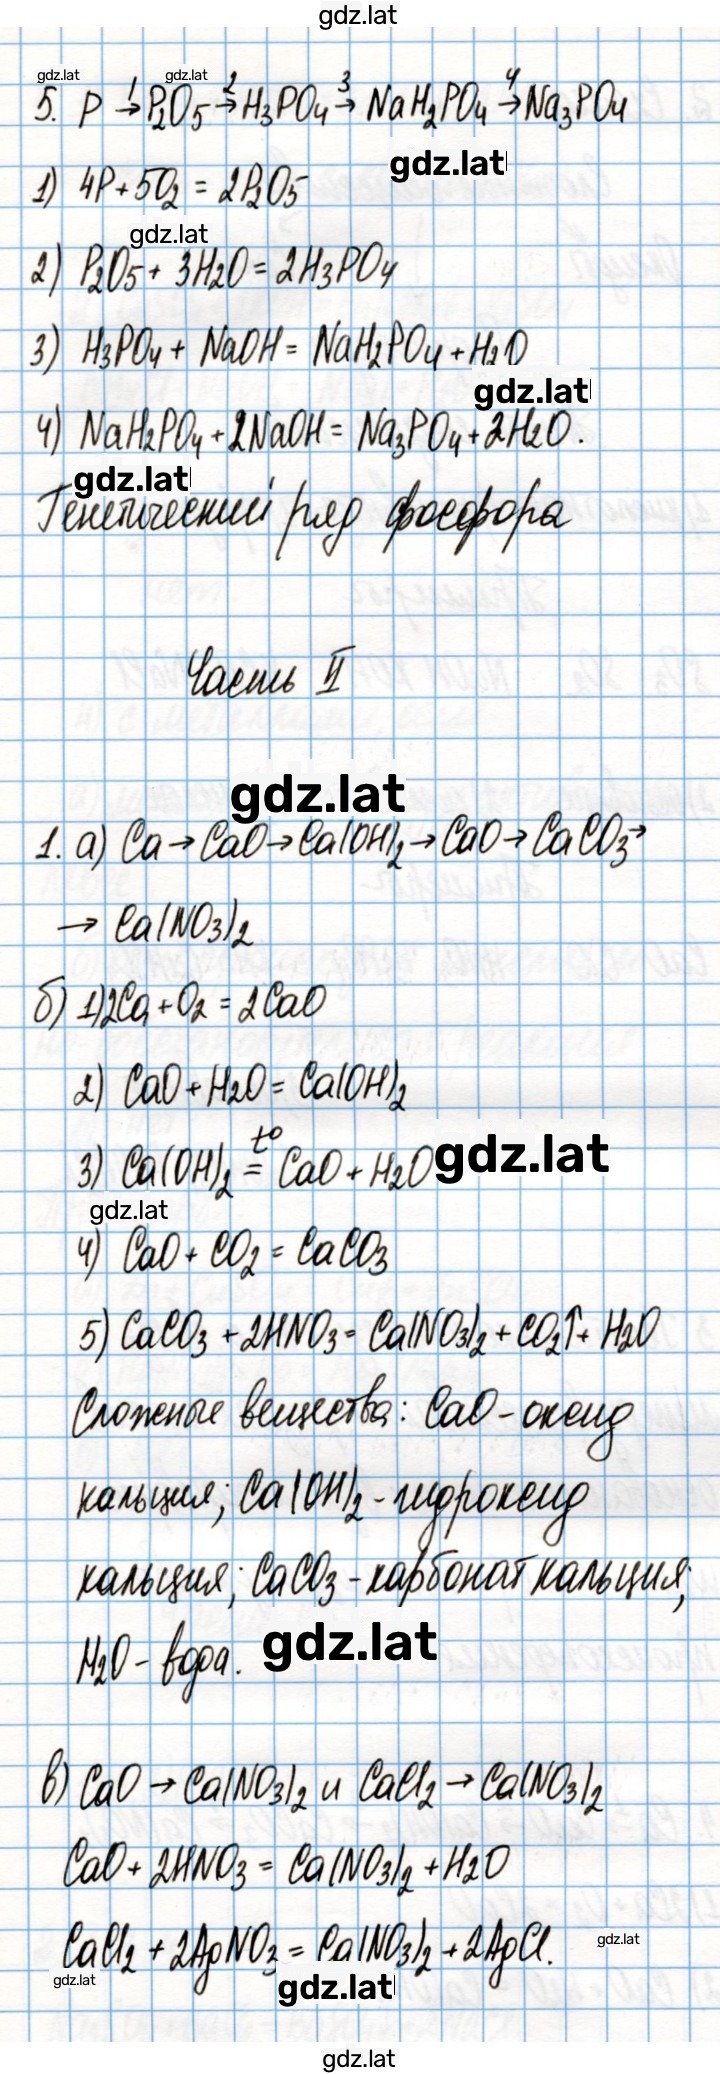 gdz.lat
gdz.lat gdz.lat
5. P →¹ P₂O₅ →² H₃PO₄ →³ NaH₂PO₄ →⁴ Na₃PO₄
gdz.lat
1) 4P + 5O₂ = 2P₂O₅
gdz.lat
2) P₂O₅ + 3H₂O = 2H₃PO₄
3) H₃PO₄ + NaOH = NaH₂PO₄ + H₂O
gdz.lat
4) NaH₂PO₄ + 2NaOH = Na₃PO₄ + 2H₂O.
gdz.lat
Генетический ряд фосфора
Часть II
gdz.lat
1. а) Ca → CaO → Ca(OH)₂ → CaO → CaCO₃ →
→ Ca(NO₃)₂
б) 1) 2Ca + O₂ = 2CaO
2) CaO + H₂O = Ca(OH)₂
3) Ca(OH)₂ =t° CaO + H₂O gdz.lat
gdz.lat
4) CaO + CO₂ = CaCO₃
5) CaCO₃ + 2HNO₃ = Ca(NO₃)₂ + CO₂↑ + H₂O
Сложные вещества: CaO - оксид
кальция; Ca(OH)₂ - гидроксид
кальция; CaCO₃ - карбонат кальция;
H₂O - вода. gdz.lat
в) CaO → Ca(NO₃)₂ и CaCl₂ → Ca(NO₃)₂
CaO + 2HNO₃ = Ca(NO₃)₂ + H₂O
CaCl₂ + 2AgNO₃ = Ca(NO₃)₂ + 2AgCl.
gdz.lat
gdz.lat gdz.lat
gdz.lat